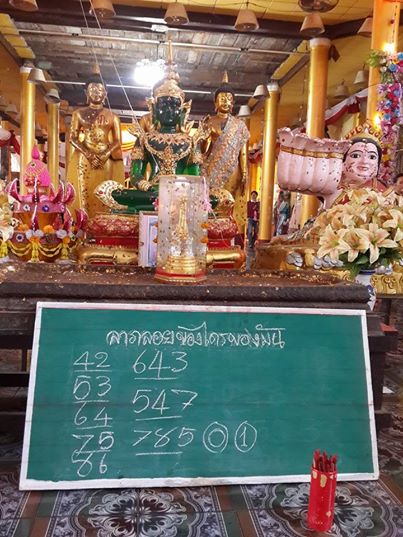 ลาภลอยของใครของมัน
42 643
53
64 547
75 785 0 1
86